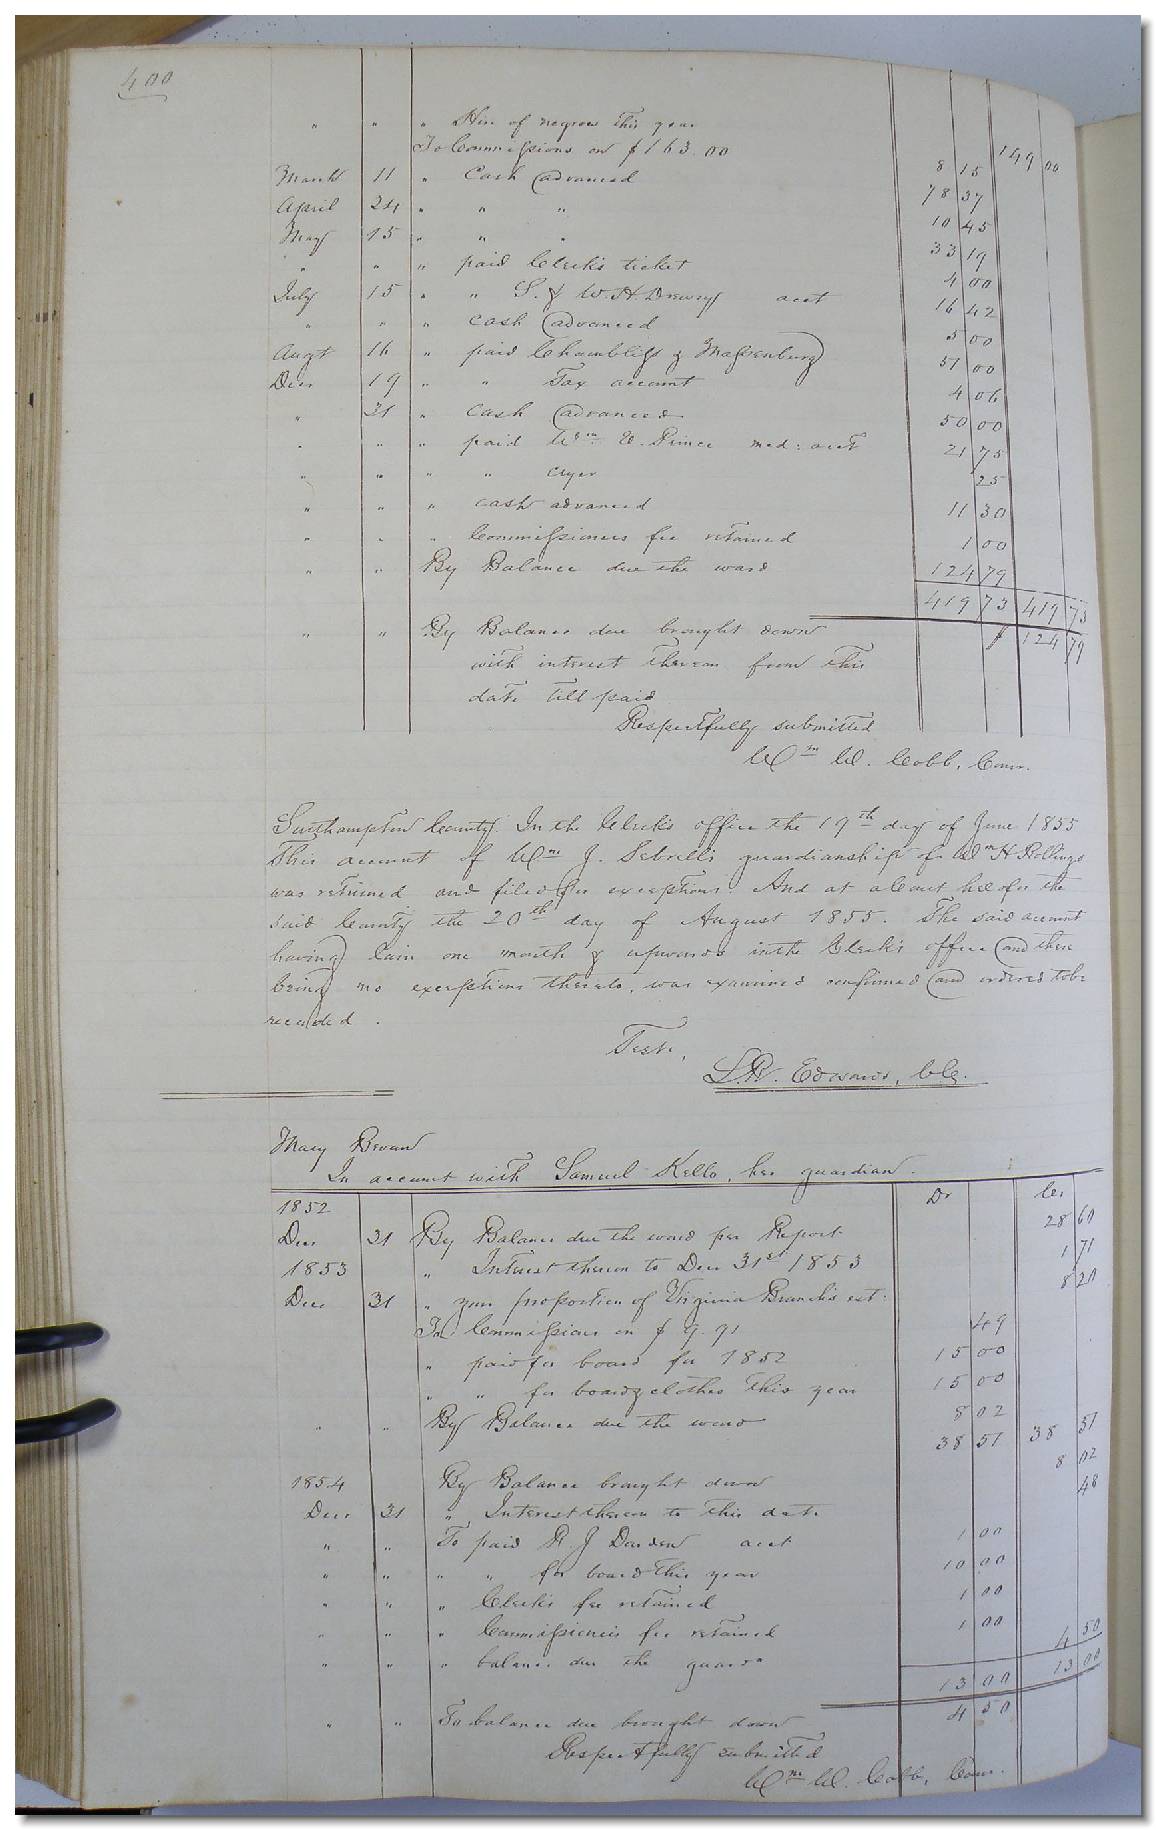 400
" " " Hire of negroes this year 149 00
To Commissions on $163.00 8 15
March 11 " Cash advanced 78 37
April 24 " " " 10 45
May 15 " " " 33 19
" " " paid Clerk's ticket 4 00
July 15 " " S. & W. H. Drewry acct 16 42
" " " cash advanced 5 00
Augt 16 " paid Chambliss & Massenburg 51 00
Decr 19 " " Tax account 4 06
" 31 " cash advanced 50 00
" " " paid Wm E. Prince med: acct 21 75
" " " " cryer 25
" " " cash advanced 11 30
" " " Commissioners fee retained 1 00
" " By Balance due the ward 124 79
419 73 419 73
" " By Balance due brought down 124 79
with interest thereon from this
date till paid
Respectfully submitted
Wm W. Cobb, Com.
Southampton County. In the Clerk's office the 19th day of June 1855
This account of Wm J. Sebrell's guardianship of Wm H Rollings
was returned and filed for exceptions. And at a Court held for the
said County the 20th day of August 1855. The said account
having lain one month & upwards in the Clerk's office and there
being no exceptions thereto, was examined confirmed and ordered to be
recorded.
Teste,
L. R. Edwards, Clk.
Mary Bevan
In account with Samuel Kello, her guardian.
1852 Dr Cr
Decr 31 By Balance due the ward per Report 28 60
1853 " Interest thereon to Decr 31st 1853 1 71
Decr 31 " your proportion of Virginia Branch's est: 8 20
To Commissions on $9.91 49
" paid for board for 1852 15 00
" " for board & clothes this year 15 00
" " By Balance due the ward 8 02
38 51 38 51
1854 By Balance brought down 8 02
Decr 31 " Interest thereon to this date 48
" " To paid R J Darden acct 1 00
" " " " for board this year 10 00
" " " Clerk's fee retained 1 00
" " " Commissioners fee retained 1 00
" " " balance due the guardn 4 50
13 00 13 00
" " To balance due brought down 4 50
Respectfully submitted
Wm W. Cobb, Com.